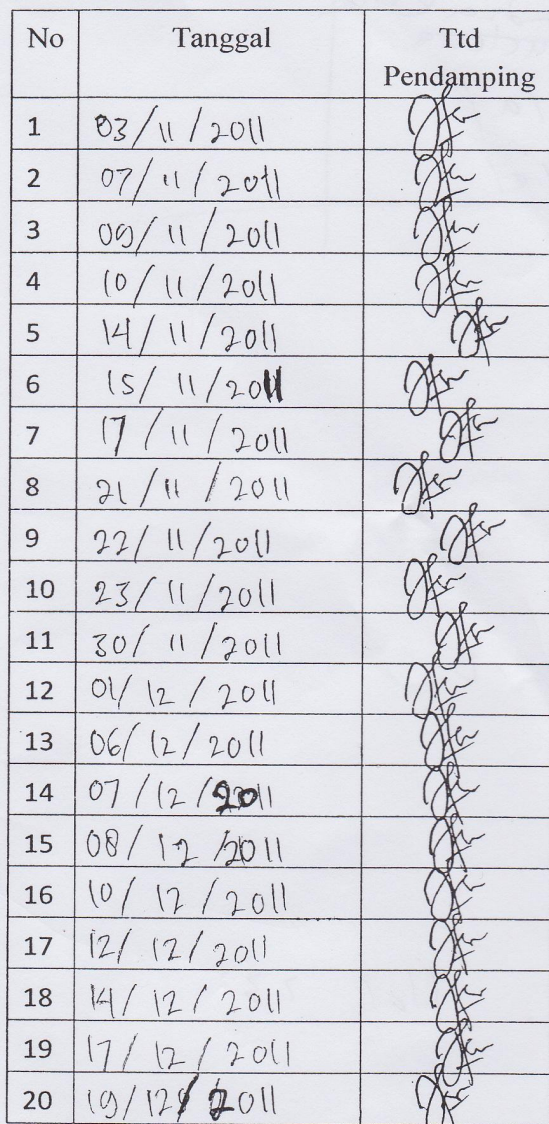 No Tanggal Ttd Pendamping
1 03/11/2011
2 07/11/2011
3 09/11/2011
4 10/11/2011
5 14/11/2011
6 15/11/2011
7 17/11/2011
8 21/11/2011
9 22/11/2011
10 23/11/2011
11 30/11/2011
12 01/12/2011
13 06/12/2011
14 07/12/2011
15 08/12/2011
16 10/12/2011
17 12/12/2011
18 14/12/2011
19 17/12/2011
20 19/12/2011